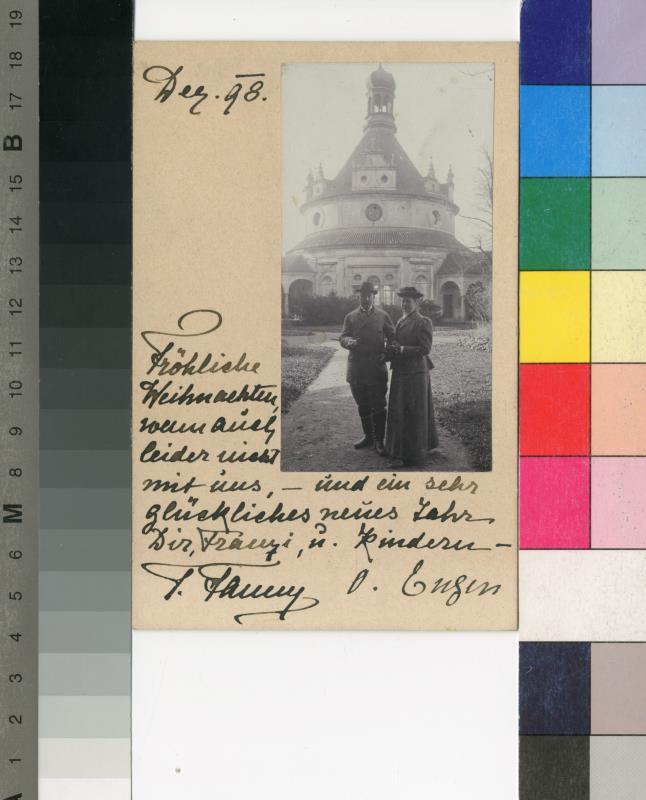 Dez. 98.
Fröhliche
Weihnachten,
wenn auch
leider nicht
mit uns, – und ein sehr
glückliches neues Jahr
Dir, Franzi, u. Kindern –
T. Fanny O. Eugen
19
18
17
B
15
14
13
12
11
10
9
8
M
6
5
4
3
2
1
A